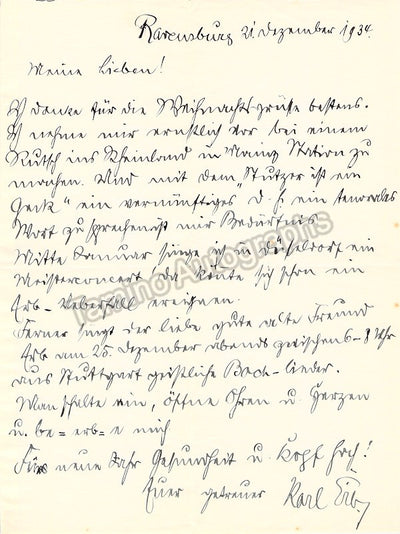 Ravensburg 21. Dezember 1934.
Meine Lieben!
Ich danke für die Weihnachtsgrüße bestens.
Ich nehme mir ernstlich vor bei einem
Rutsch ins Rheinland in Mainz Station zu
machen. Und mit dem "Stutzer ist ein
Geck" ein vernünftiges d. h. ein tenorales
Wort zu sprechen ist mir Bedürfnis
Mitte Januar singe ich in Düsseldorf ein
Meisterconcert da könte sich schon ein
Erb-Ueberfall ereignen.
Ferner singt der liebe gute alte Freund
Erb am 25. Dezember abends zwischen 6-8 Uhr
aus Stuttgart geistliche Bach-lieder.
Man schalte ein, öffne Ohren u. Herzen
u. be=erb=e mich
Fürs neue Jahr Gesundheit u. Kopf hoch!
Euer getreuer Karl Erb
Tamino Autographs